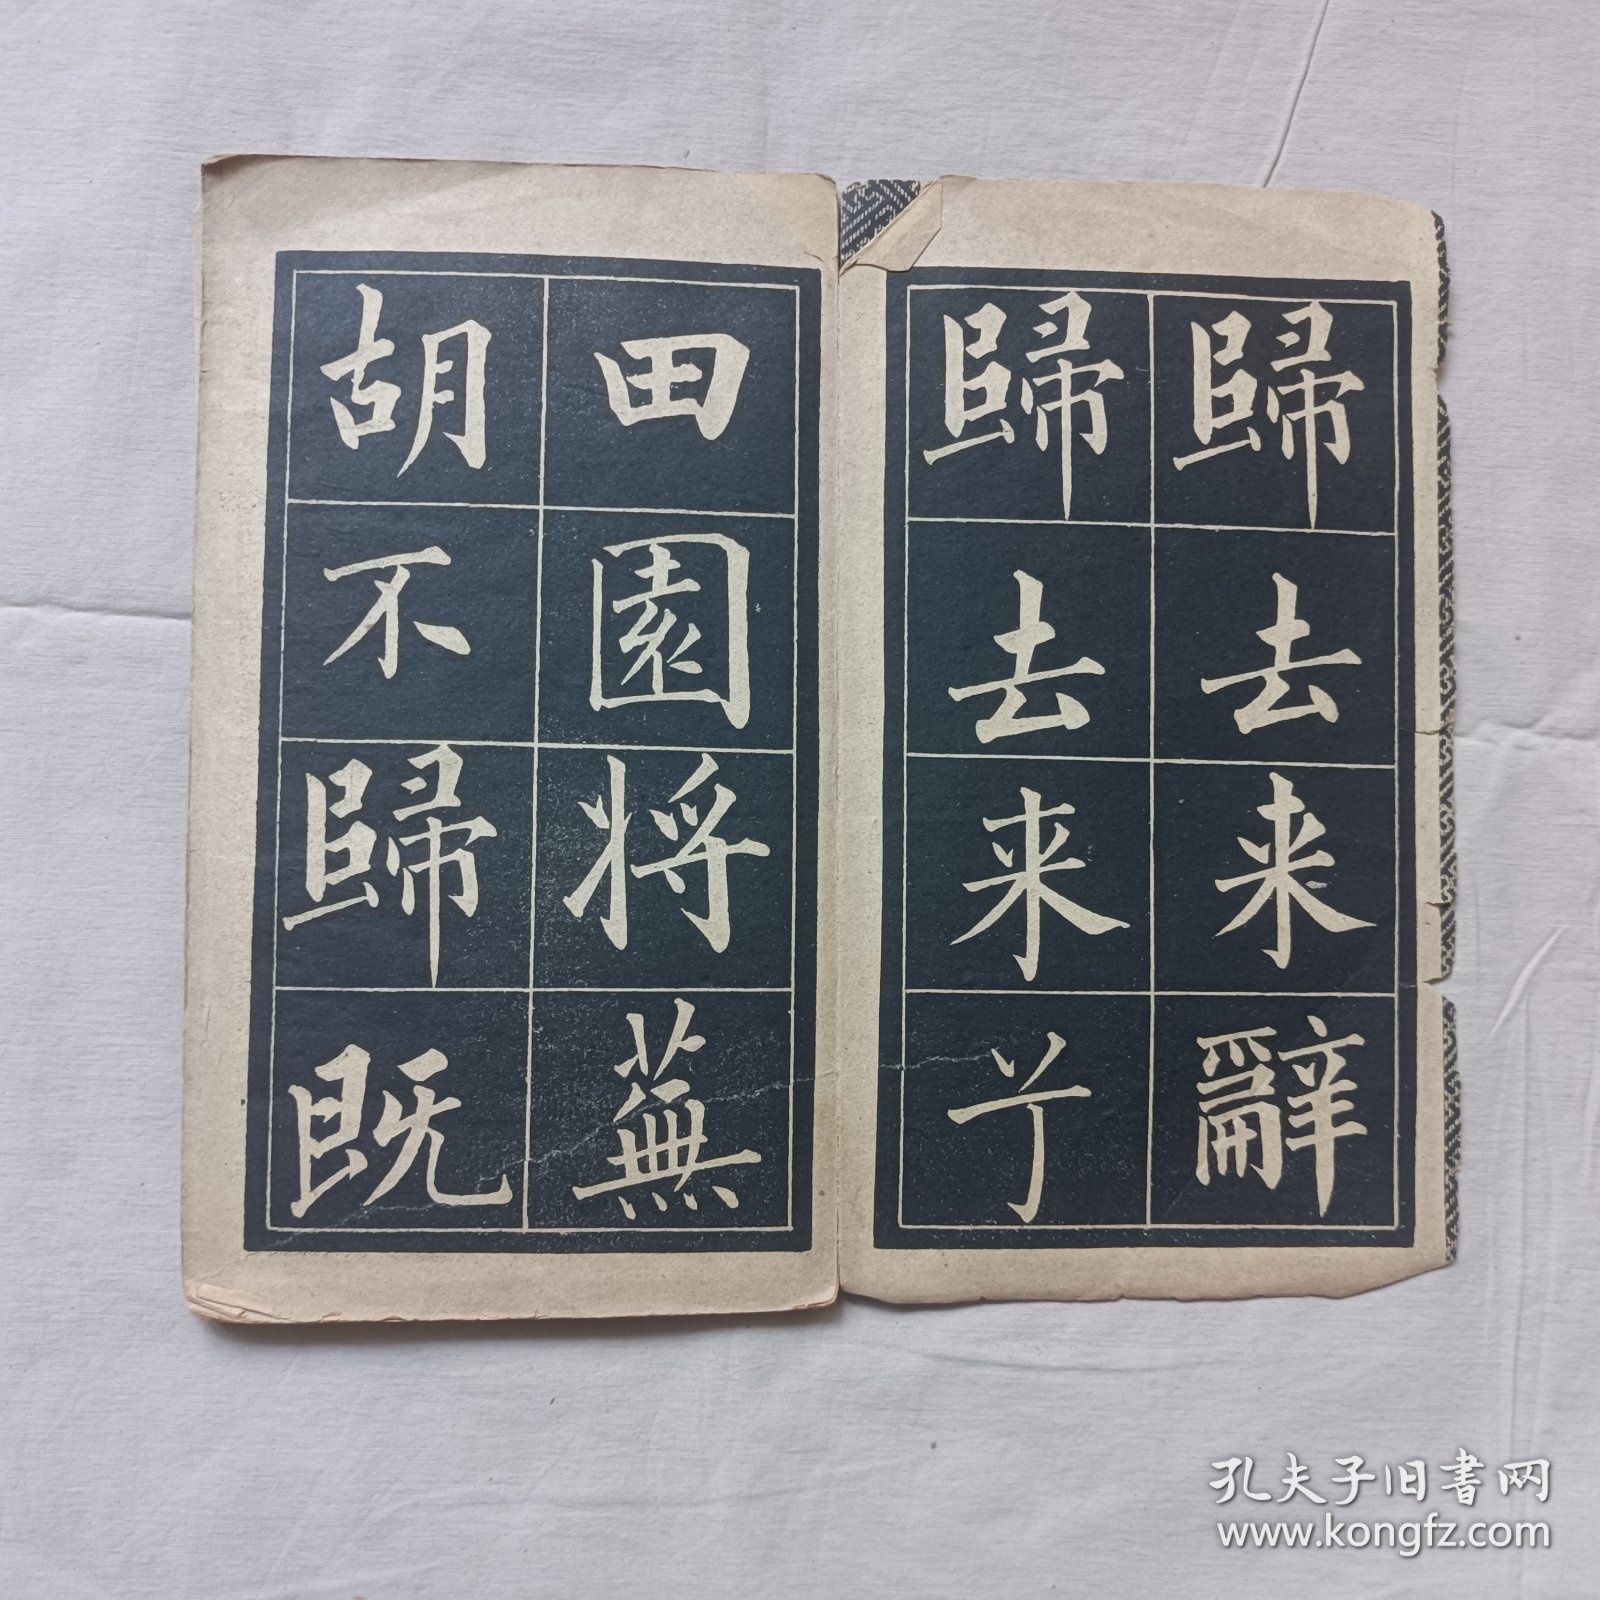 歸去来辭
歸去来丫
田園将蕪
胡不歸既
孔夫子旧书网
www.kongfz.com